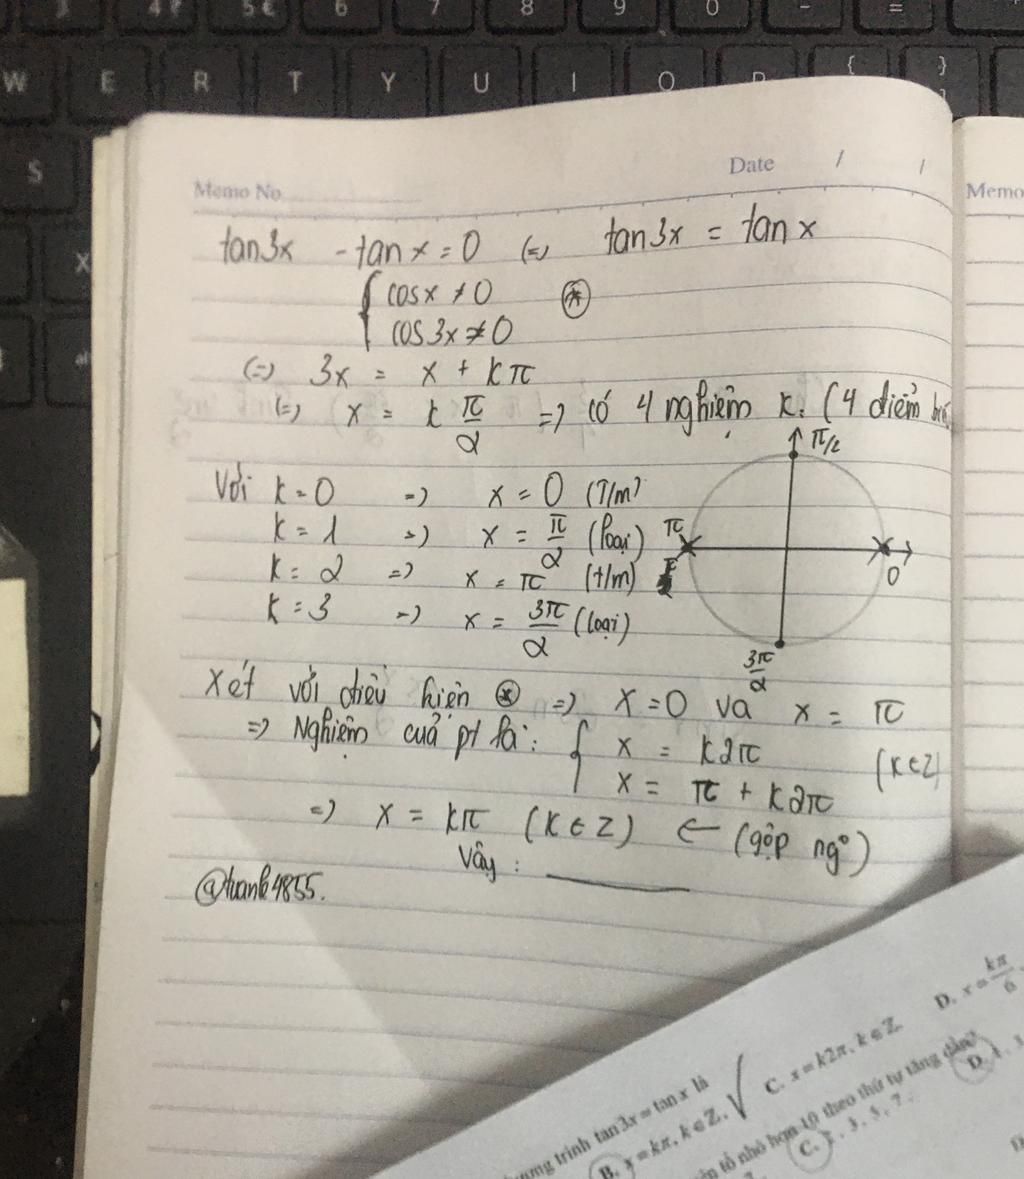 3 4 5 € 6 7 8 9 0 - =
W E R T Y U I O P { }
S
X
Date / /
Memo No. Memo
tan3x - tan x = 0 (=) tan3x = tan x
{ cosx ≠ 0
cos 3x ≠ 0 (*)
(=) 3x = x + kπ
(=) x = k π/2 => có 4 nghiệm k. (4 điểm
π/2
Với k = 0 => x = 0 (T/m)
k = 1 => x = π/2 (loại) π
k = 2 => x = π (t/m) 0
k = 3 => x = 3π/2 (loại)
3π/2
Xét với điều kiện (*) => x = 0 và x = π
=> Nghiệm của pt là: { x = k2π (k ∈ Z)
x = π + k2π
=> x = kπ (k ∈ Z) ← (gộp ngo)
Vậy :
@tuanh4855.
trình tan 3x = tan x là
B. x = kπ, k ∈ Z. √ C. x = k2π, k ∈ Z. D. x = kπ/6
tố nhỏ hơn 10 theo thứ tự tăng dần?
C. , 3, 5, 7 D.